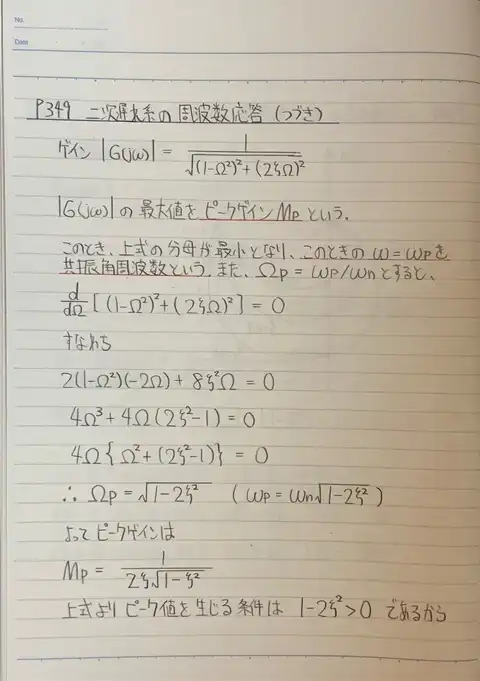 No.
Date
P349 二次遅れ系の周波数応答 (つづき)
ゲイン |G(jω)| = 1/√((1-Ω²)²+(2ζΩ)²)
|G(jω)|の最大値をピークゲインMpという。
このとき、上式の分母が最小となり、このときのω=ωpを
共振角周波数という。また、Ωp=ωp/ωnとすると、
d/dΩ[(1-Ω²)²+(2ζΩ)²]=0
すなわち
2(1-Ω²)(-2Ω)+8ζ²Ω=0
4Ω³+4Ω(2ζ²-1)=0
4Ω{Ω²+(2ζ²-1)}=0
∴ Ωp=√(1-2ζ²) (ωp=ωn√(1-2ζ²))
よってピークゲインは
Mp= 1/(2ζ√(1-ζ²))
上式よりピーク値を生じる条件は 1-2ζ²>0 であるから